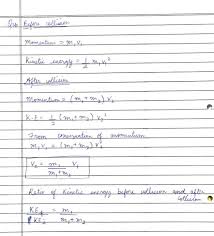 Before collision
Momentum = m₁v₁
Kinetic energy = 1/2 m₁v₁²
After collision
Momentum = (m₁ + m₂) v₂
K.E = 1/2 (m₁ + m₂) v₂²
From conservation of momentum
m₁v₁ = (m₁ + m₂) v₂
v₂ = m₁/(m₁ + m₂) v₁
Ratio of Kinetic energy before collision and after
collision
KE / KE = m₁/(m₁ + m₂)